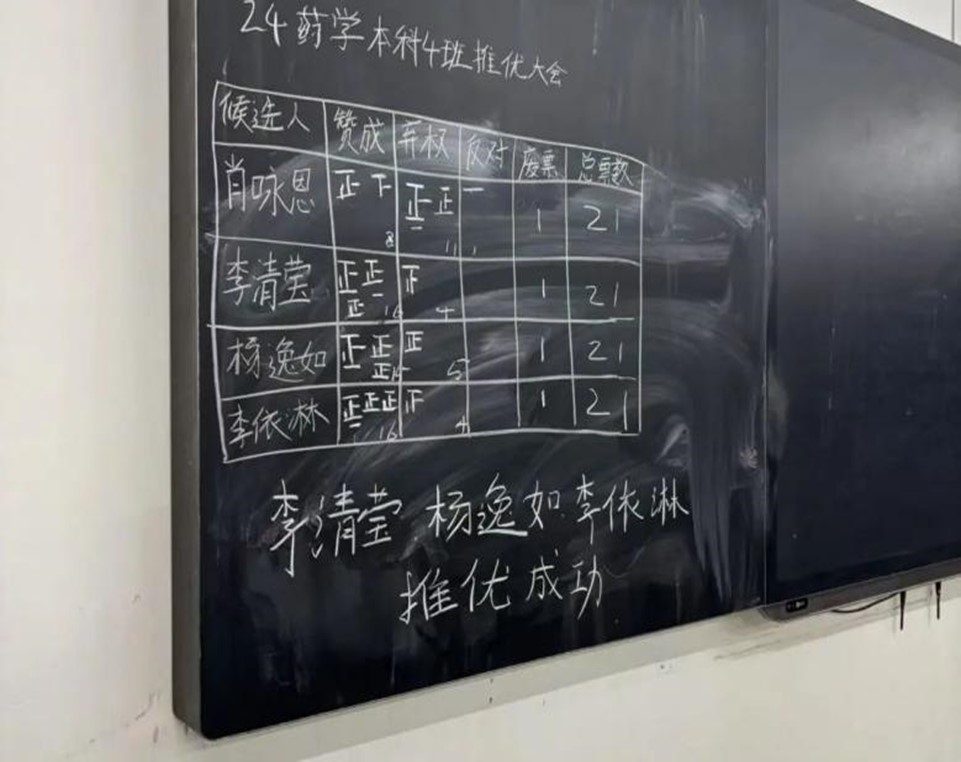 24药学本科4班推优大会
候选人 赞成 弃权 反对 废票 总票数
肖咏恩 正下 8 正正一 11 一 1 1 21
李清莹 正正正一 16 正 4 1 21
杨逸如 正正正 15 正 5 1 21
李依淋 正正正一 16 正 4 1 21
李清莹 杨逸如 李依淋
推优成功